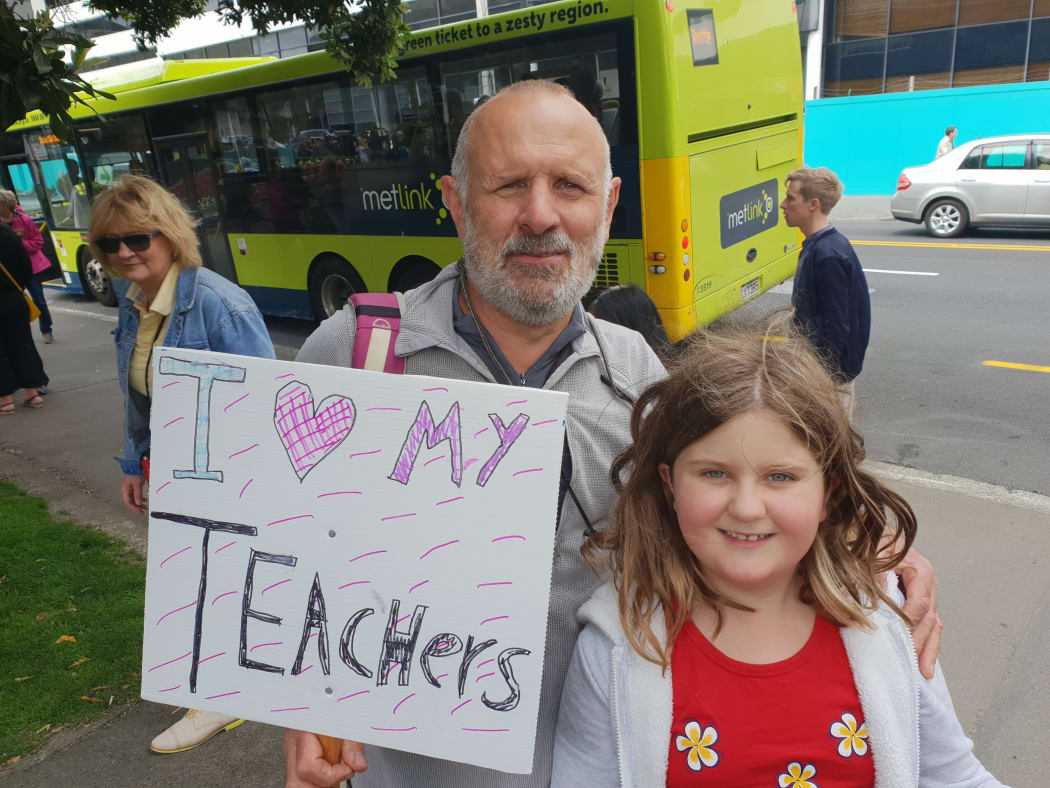 green ticket to a zesty region.
metlink
metlink
I ♥ My
TEAcHerS